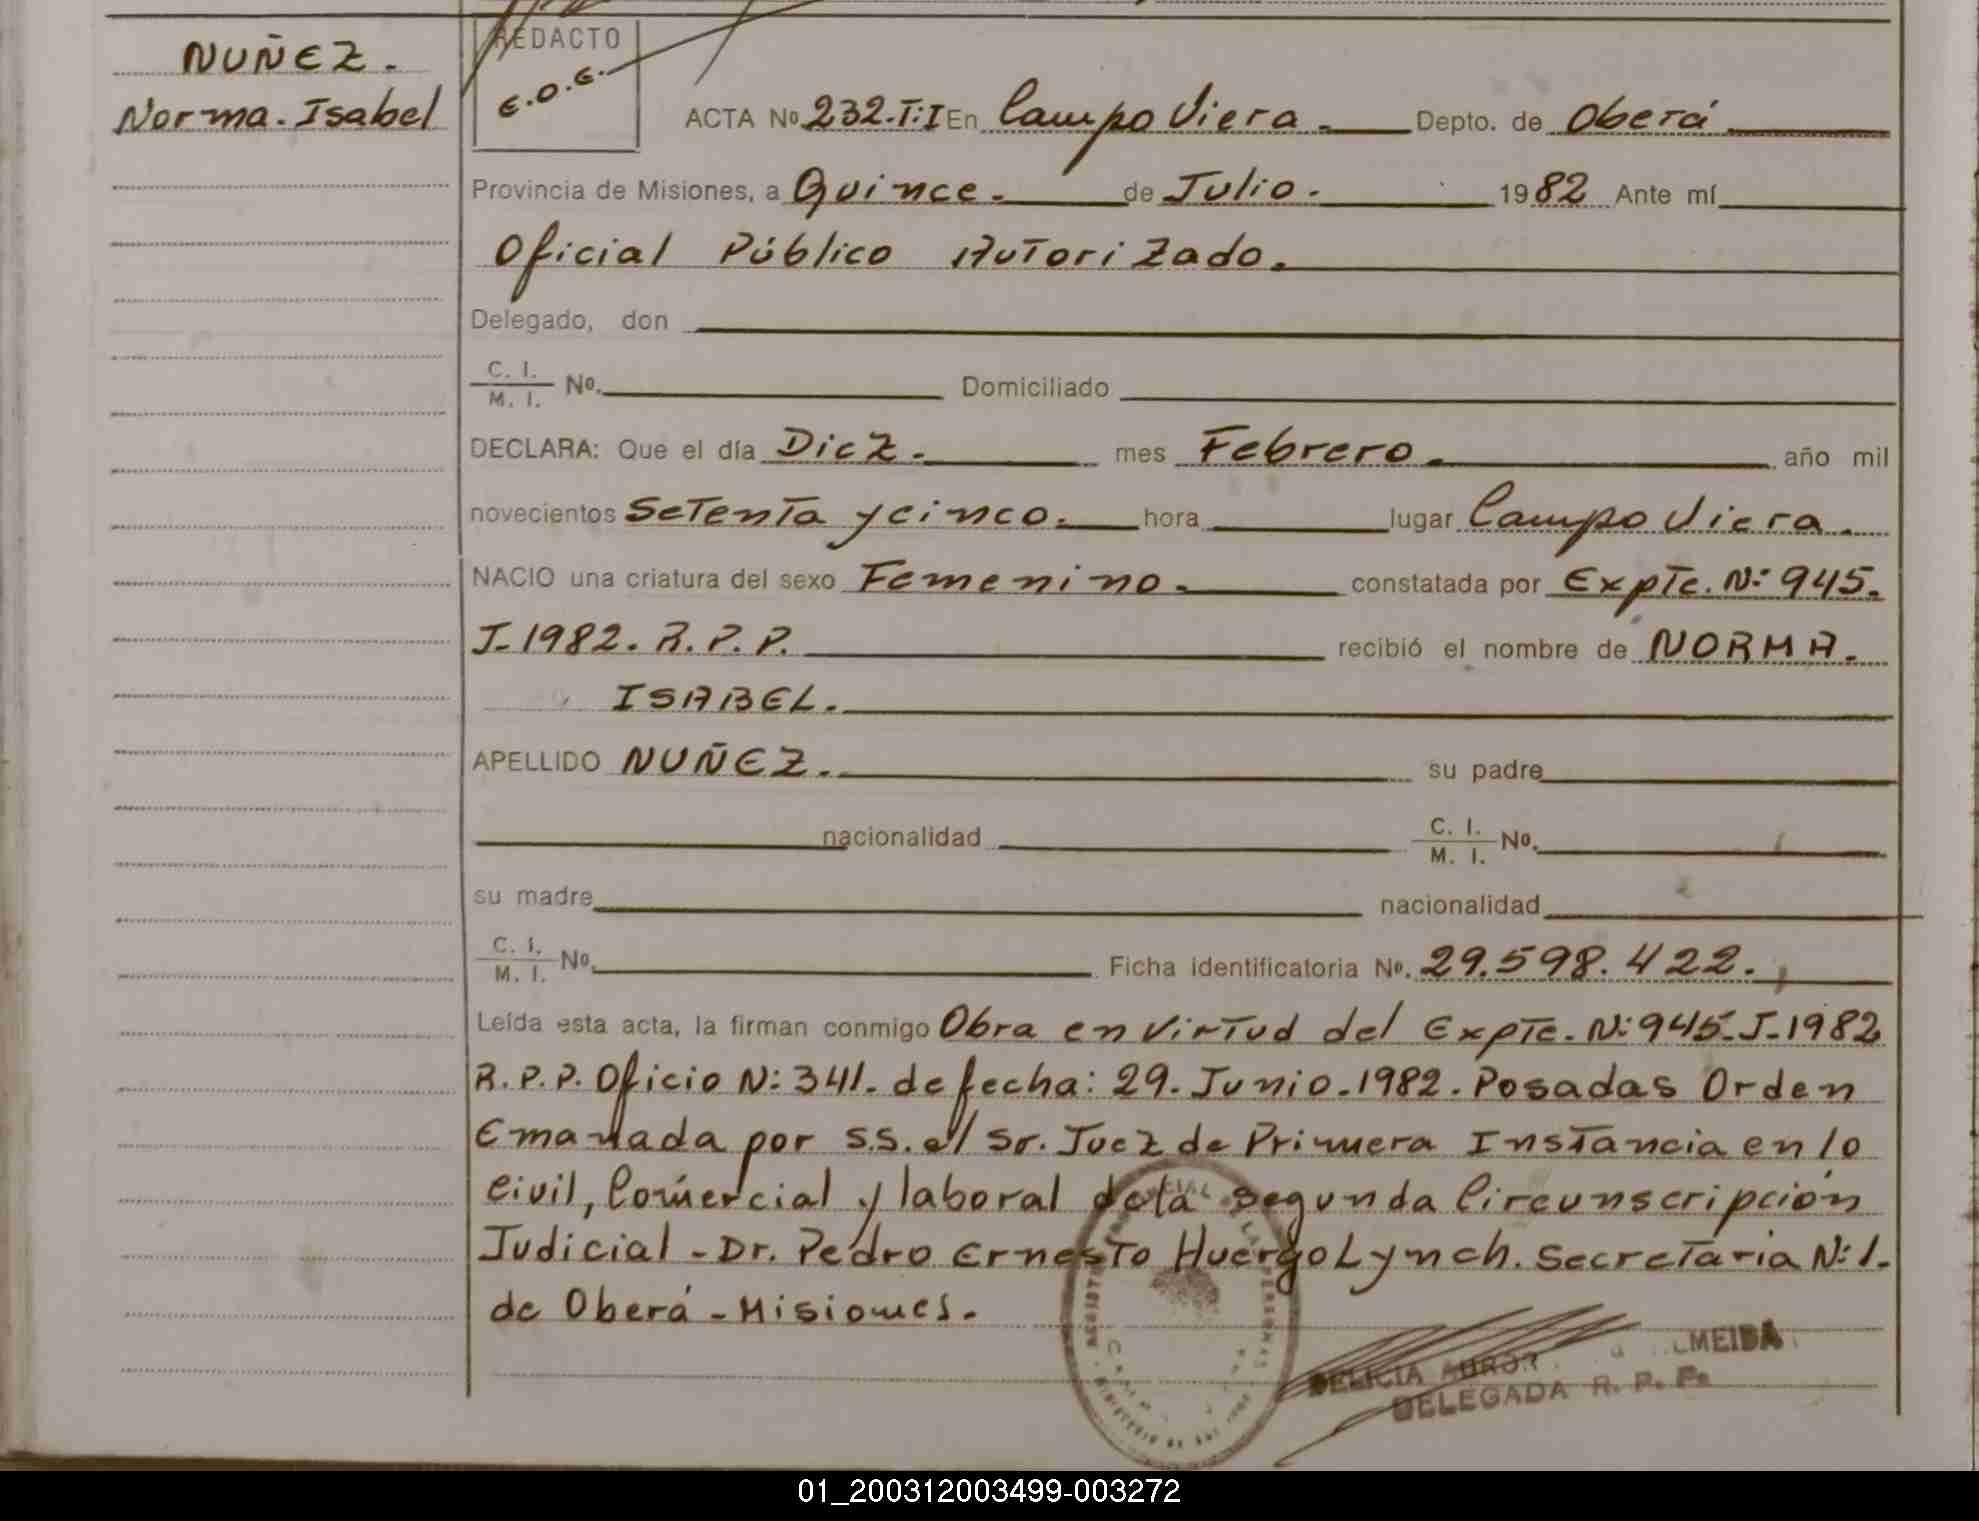 NUÑEZ.
Norma. Isabel
REDACTO
E.O.E.
ACTA Nº 232.T:I En Campo Viera. Depto. de Oberá
Provincia de Misiones, a Quince. de Julio. 1982 Ante mí
Oficial Público Autorizado.
Delegado, don
C. I.
M. I. Nº. Domiciliado
DECLARA: Que el día Diez. mes Febrero. año mil
novecientos Setenta y cinco. hora lugar Campo Viera.
NACIO una criatura del sexo Femenino. constatada por Expte. N: 945.
J-1982. R.P.P. recibió el nombre de NORMA.
ISABEL.
APELLIDO NUÑEZ. su padre
nacionalidad C. I.
M. I. Nº.
su madre nacionalidad
C. I.
M. I. Nº. Ficha identificatoria Nº. 29.598.422.
Leída esta acta, la firman conmigo Obra en virtud del Expte. N: 945-J-1982
R.P.P. Oficio N: 341. de fecha: 29. Junio. 1982. Posadas Orden
Emanada por S.S. el Sr. Juez de Primera Instancia en lo
Civil, Comercial y laboral de la Segunda Circunscripción
Judicial - Dr. Pedro Ernesto Huergo Lynch. Secretaria N: 1.
de Oberá - Misiones.
DELICIA AUROR MEIDA
DELEGADA R. P. P.
01_200312003499-003272